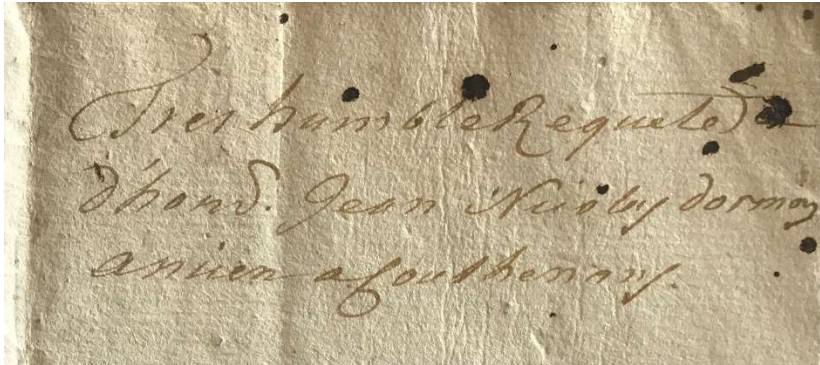 Tres humble Requete de
d'hond. Jean dormoy
ancien a Couthenans.